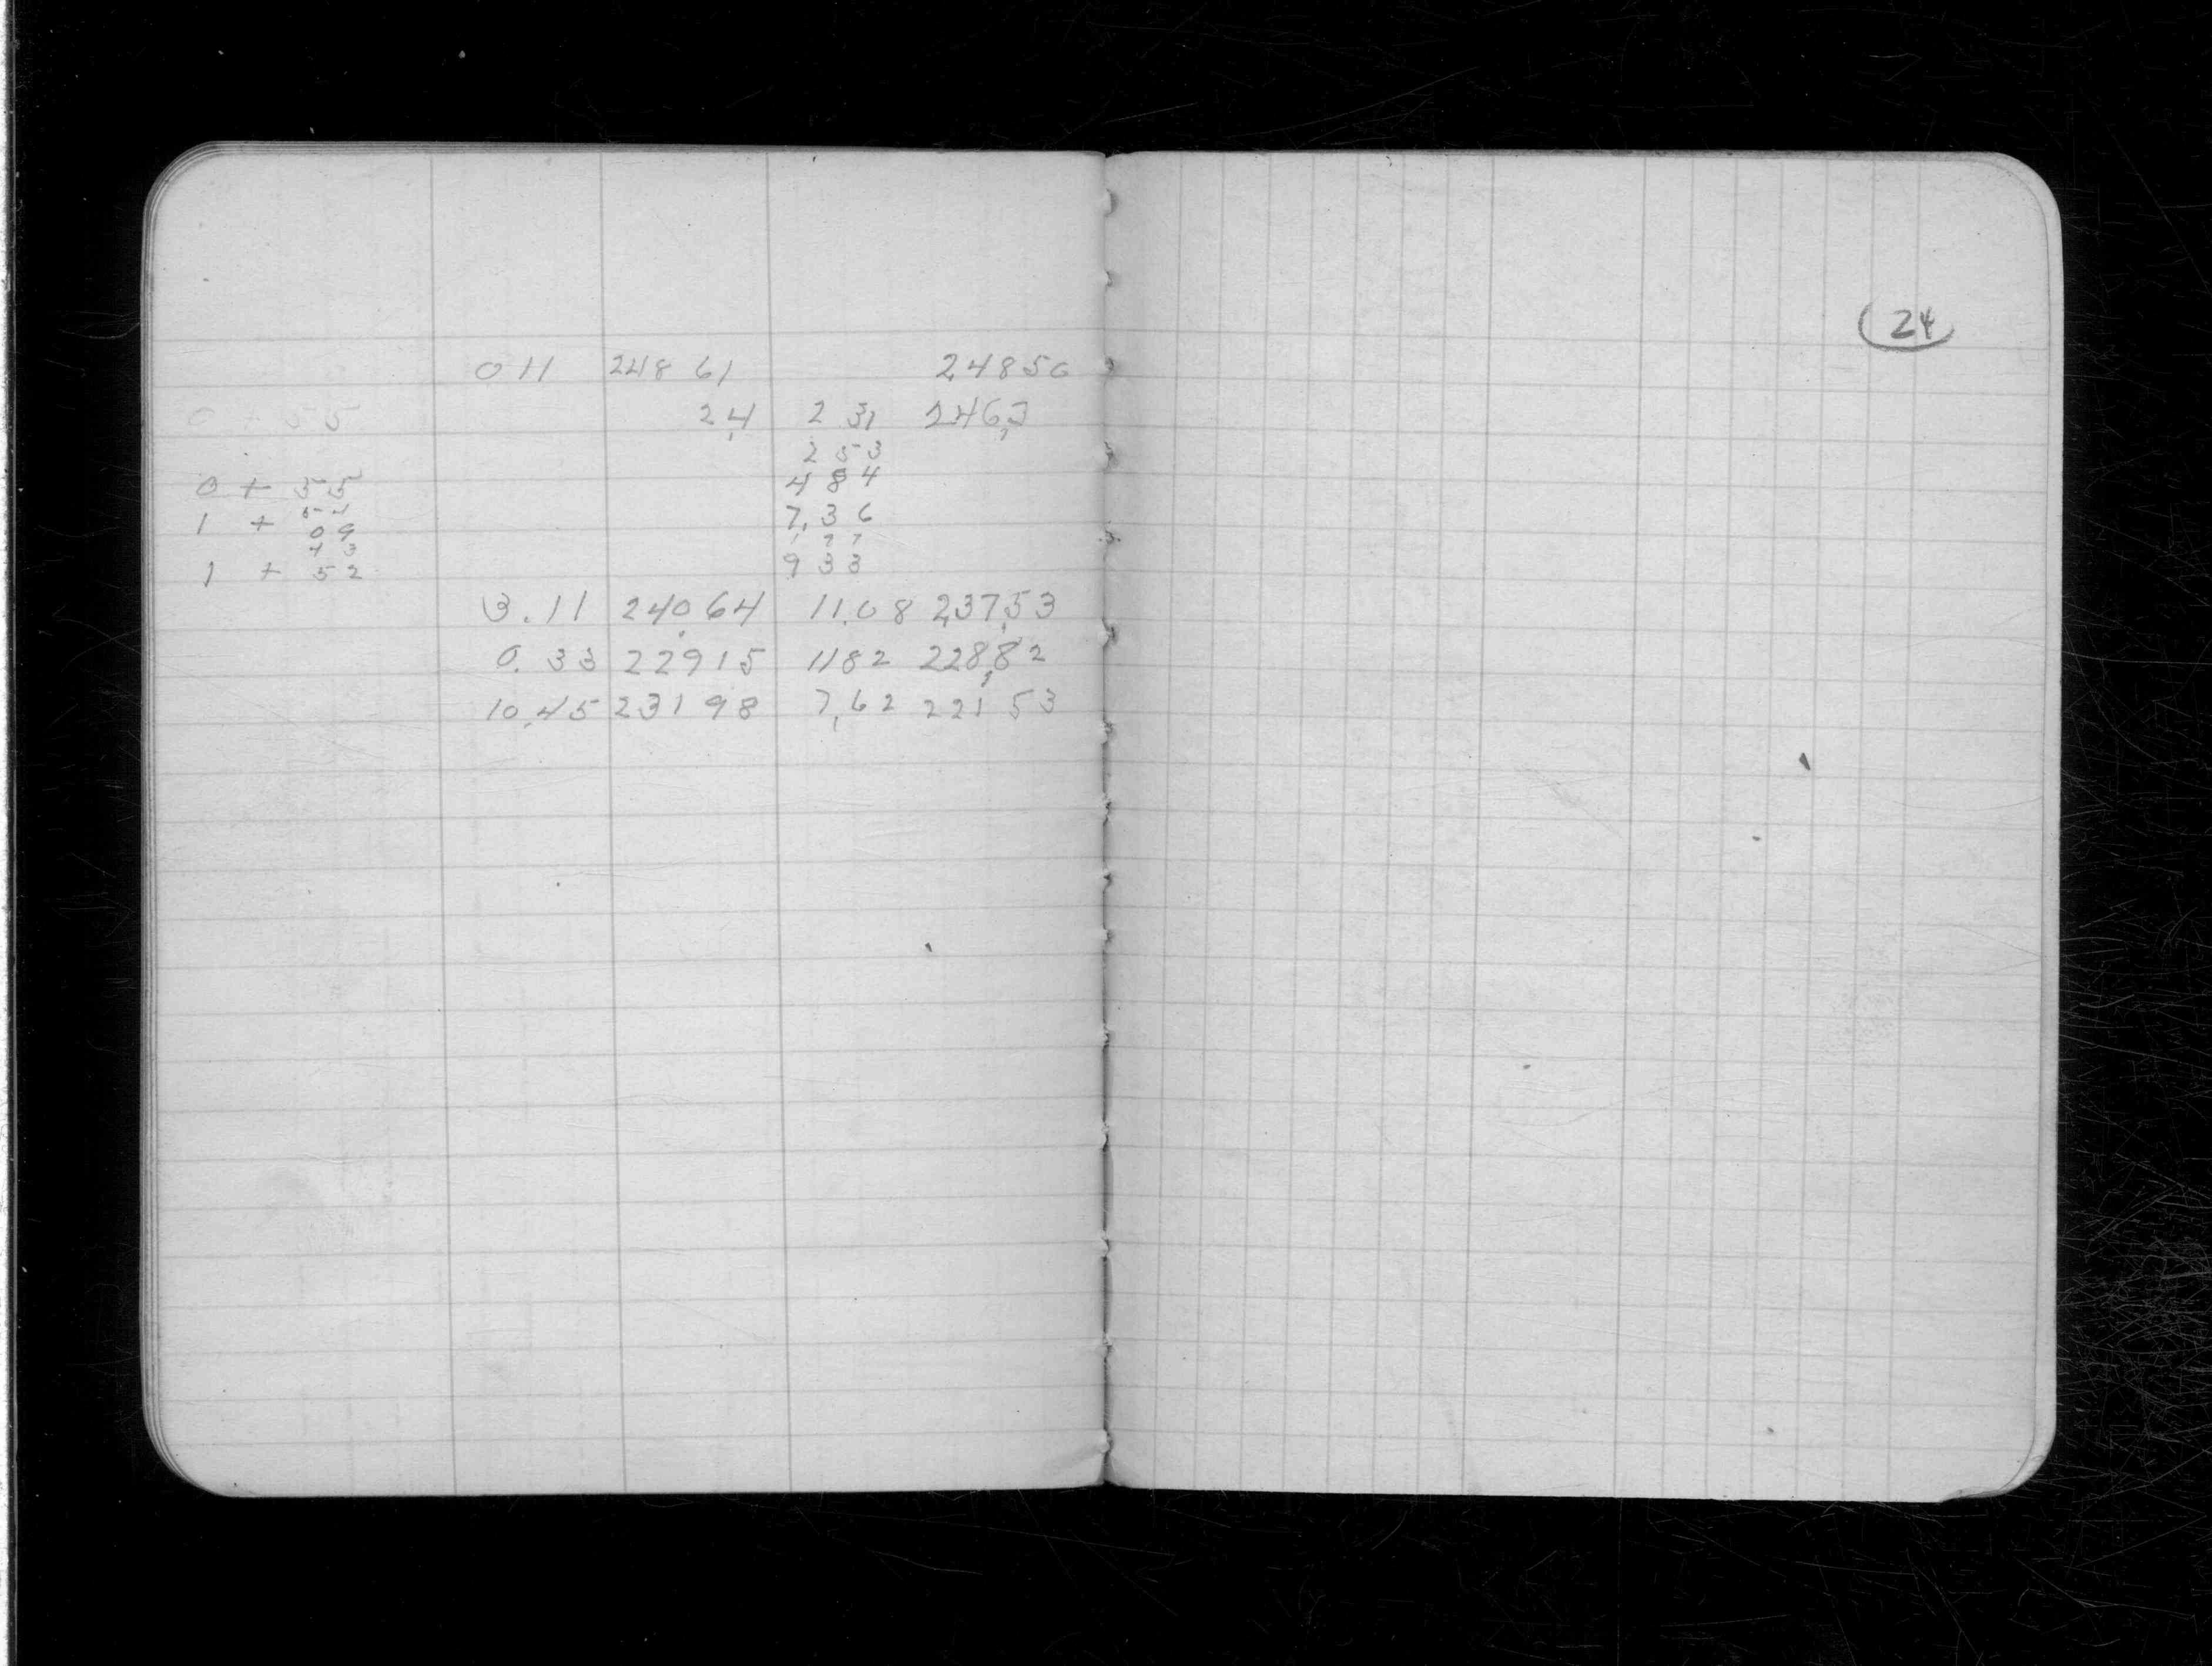 0 11 248 61 24850
0 + 55 24 2 31 2463
2 53
0 + 55 4 84
54
1 + 09 7,36
43 1 97
1 + 52 9 33
3.11 240.64 11.08 237.53
0.33 229 15 11 82 228,82
10,45 231 98 7,62 221 53
24